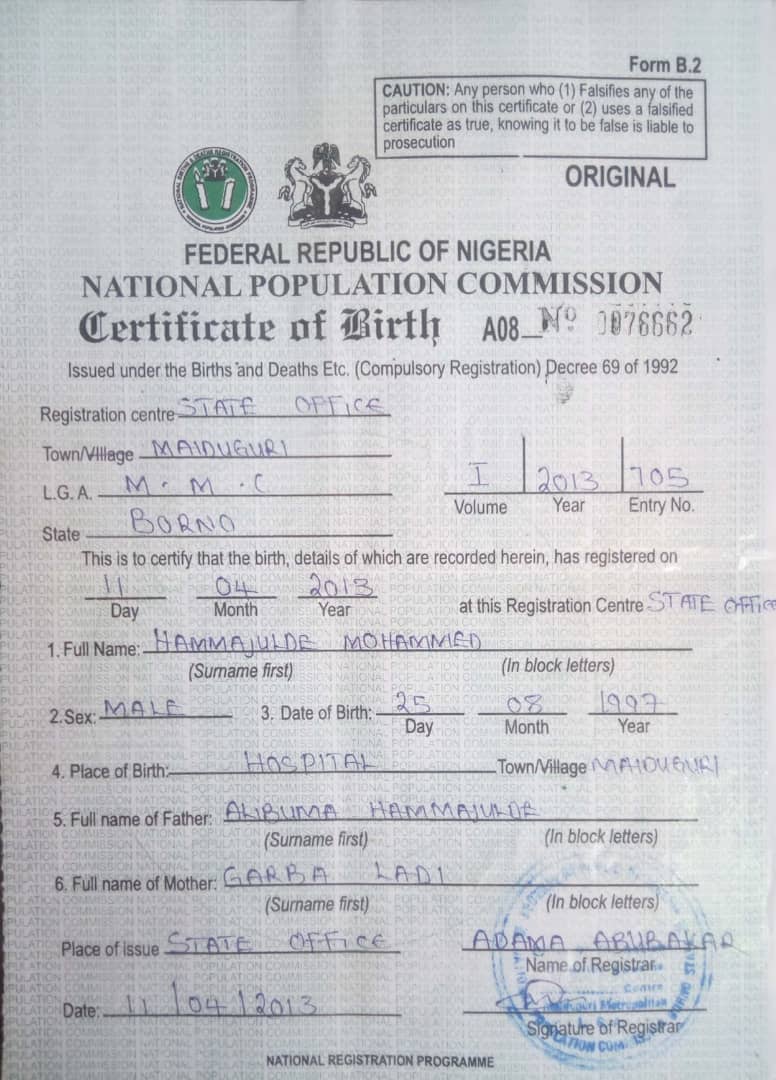 Form B.2
CAUTION: Any person who (1) Falsifies any of the
particulars on this certificate or (2) uses a falsified
certificate as true, knowing it to be false is liable to
prosecution
ORIGINAL
FEDERAL REPUBLIC OF NIGERIA
NATIONAL POPULATION COMMISSION
Certificate of Birth A08 Nº 0076662
Issued under the Births and Deaths Etc. (Compulsory Registration) Decree 69 of 1992
Registration centre STATE OFFICE
Town/Village MAIDUGURI
L.G.A. M.M.C
I 2013 705
Volume Year Entry No.
State BORNO
This is to certify that the birth, details of which are recorded herein, has registered on
11 04 2013
Day Month Year at this Registration Centre STATE OFFICE
1. Full Name: HAMMAJULDE MOHAMMED
(Surname first) (In block letters)
2. Sex: MALE 3. Date of Birth: 25 08 1997
Day Month Year
4. Place of Birth: HOSPITAL Town/Village MAIDUGURI
5. Full name of Father: ALIBUMA HAMMAJULDE
(Surname first) (In block letters)
6. Full name of Mother: GARBA LADI
(Surname first) (In block letters)
Place of issue STATE OFFICE ADAMA ABUBAKAR
Name of Registrar
Date: 11/04/2013
Signature of Registrar
NATIONAL REGISTRATION PROGRAMME